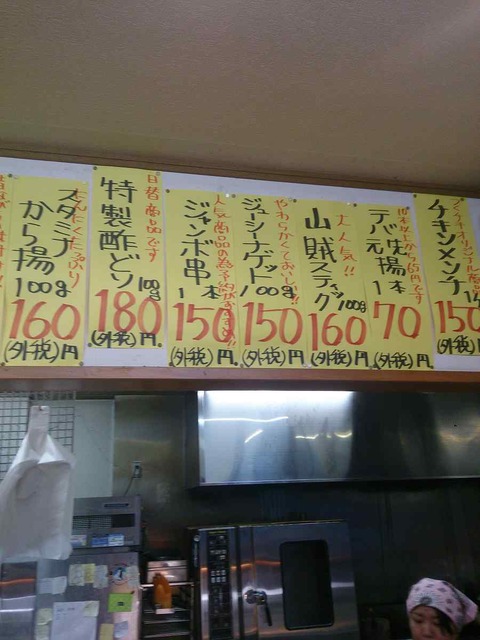 チキンメンチ
150
(外税)円
10本以上から65円です
テバ元味揚
1本
70
(外税)円
大人気!!
山賊スティック
100g
160
(外税)円
やわらかくておいしい!!
ジューシーナゲット
100g
150
(外税)円
人気商品の為予約がおすすめ!!
ジャンボ串
1本
150
(外税)円
日替商品です
特製酢どり
100g
180
(外税)円
にんにくたっぷり
スタミナから揚
100g
160
(外税)円